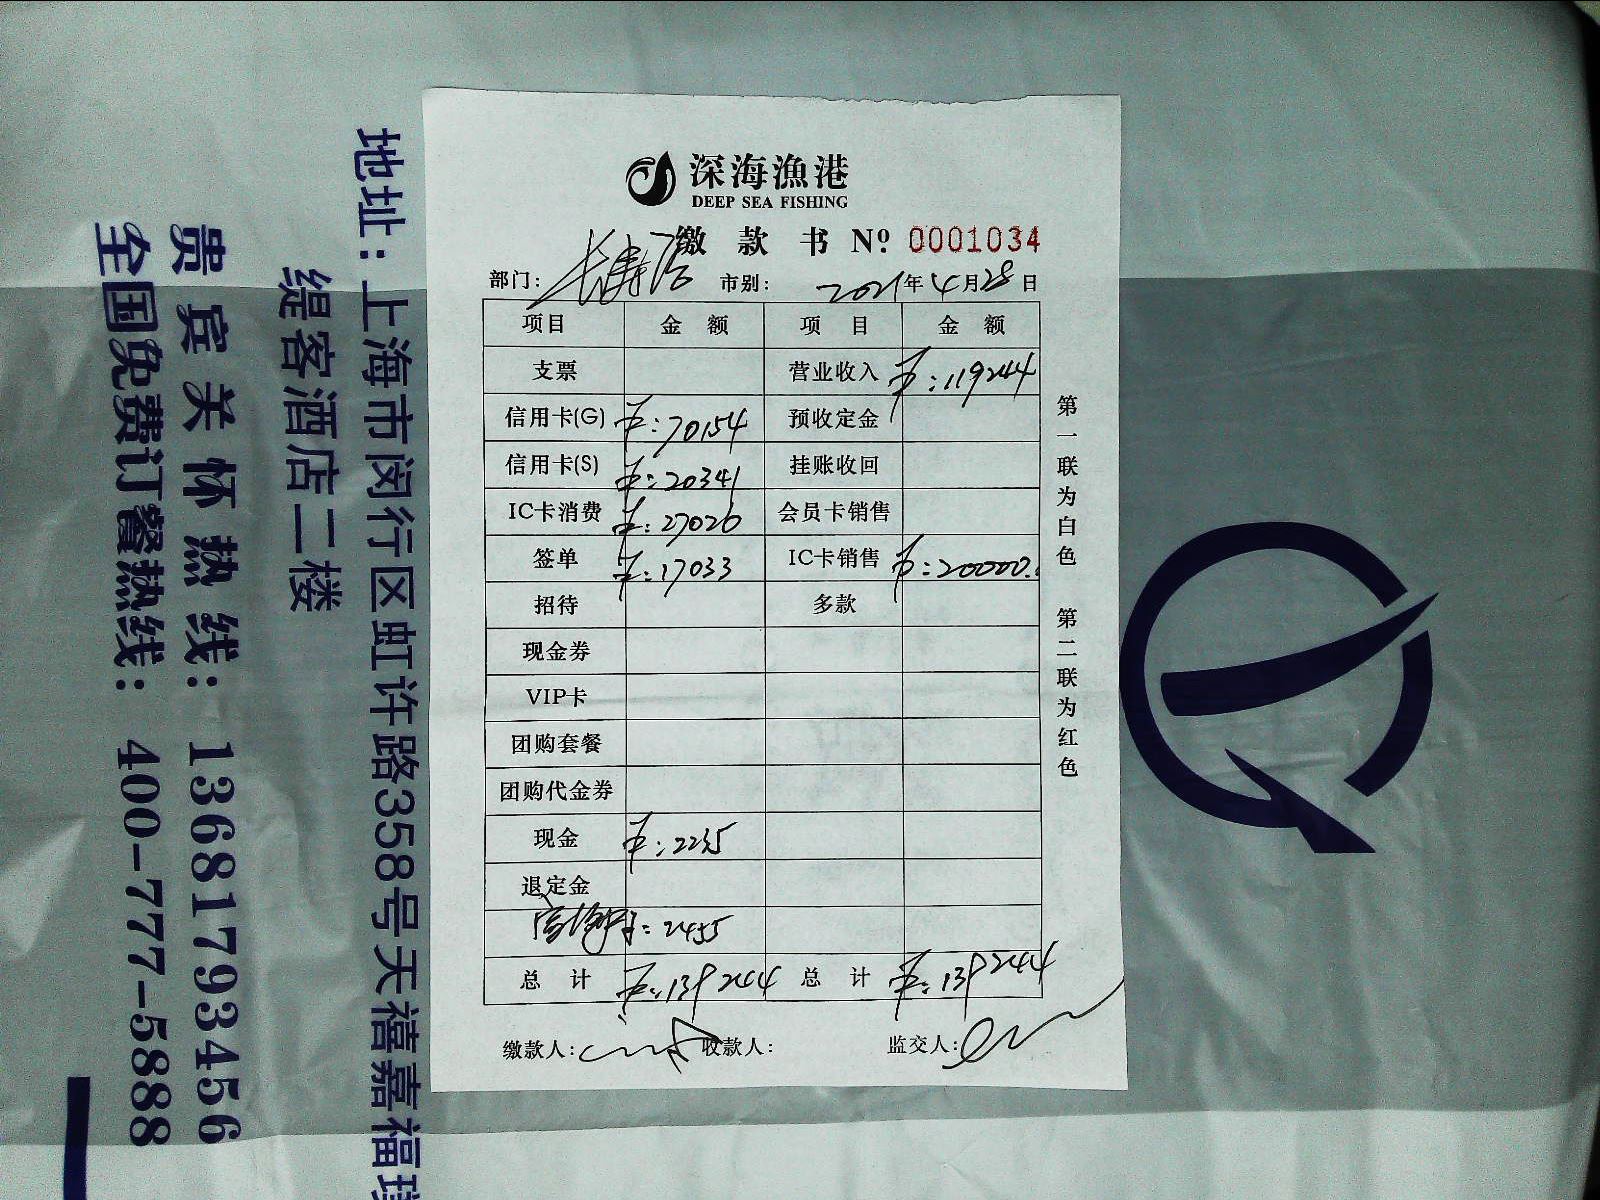 深海漁港
DEEP SEA FISHING
缴款书 Nº 0001034
部门: 长寿店 市别: 2021年4月28日
项目 金额 项目 金额
支票 营业收入 ¥:119244
信用卡(G) ¥:70154 预收定金
信用卡(S) ¥:20341 挂账收回
IC卡消费 ¥:27026 会员卡销售
签单 ¥:17033 IC卡销售 ¥:20000.
招待 多款
现金券
VIP卡
团购套餐
团购代金券
现金 ¥:2235
退定金
:2455
总计 ¥:139244 总计 ¥:139244
缴款人: 收款人: 监交人:
第一联为白色 第二联为红色
地址:上海市闵行区虹许路358号天禧嘉福
缇客酒店二楼
贵宾关怀热线:13681793456
全国免费订餐热线:400-777-5888